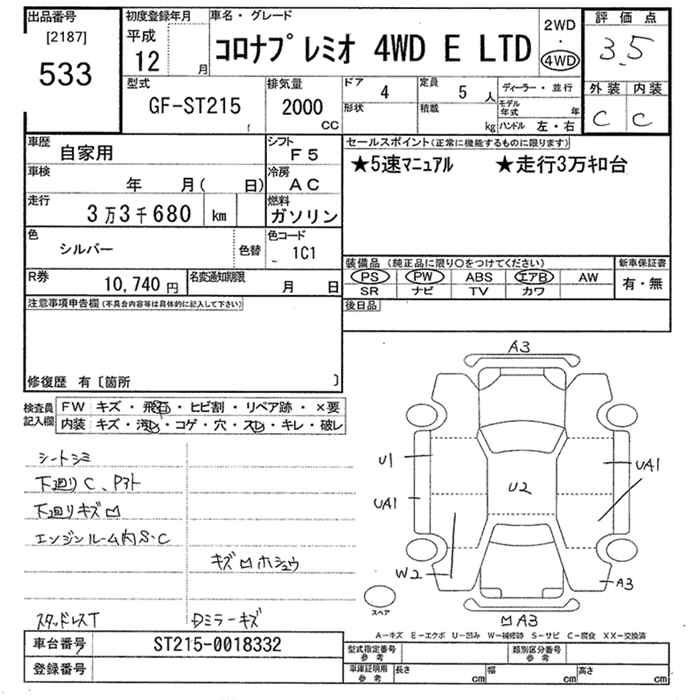 出品番号
[2187]
533
初度登録年月
平成
12 月
車名・グレード
コロナプレミオ 4WD E LTD
2WD
・
4WD
評価点
3.5
外装 内装
C C
型式
GF-ST215
排気量
2000
CC
ドア
4
定員
5 人
形状
積載
kg
ディーラー・並行
モデル年式 年
ハンドル 左・右
車歴
自家用
シフト
F5
車検
年 月( 日)
冷房
AC
走行
3万3千680 km
燃料
ガソリン
色
シルバー
色替
色コード
1C1
R券
10,740 円
名変通知期限
月 日
セールスポイント(正常に機能するものに限ります)
★5速マニュアル ★走行3万キロ台
装備品 (純正品に限り○をつけてください)
PS PW ABS エアB AW
SR ナビ TV カワ
新車保証書
有・無
後日品
注意事項申告欄(不具合内容等は具体的に記入して下さい)
修復歴 有〔箇所 〕
検査員
記入欄
FW キズ・飛石・ヒビ割・リペア跡・×要
内装 キズ・汚レ・コゲ・穴・スレ・キレ・破レ
シートシミ
下廻りC、Pアト
下廻りキズ凹
エンジンルーム内S・C
キズ凹ホシュウ
スタッドレスT
Dミラーキズ
A3
U1
UA1
UA1
U2
W2
A3
凹A3
スペア
A－キズ E－エクボ U－凹み W－補修跡 S－サビ C－腐食 XX－交換済
車台番号
ST215-0018332
登録番号
型式指定番号
参考
類別区分番号
参考
車庫証明用
参考
長さ cm
幅 cm
高さ cm